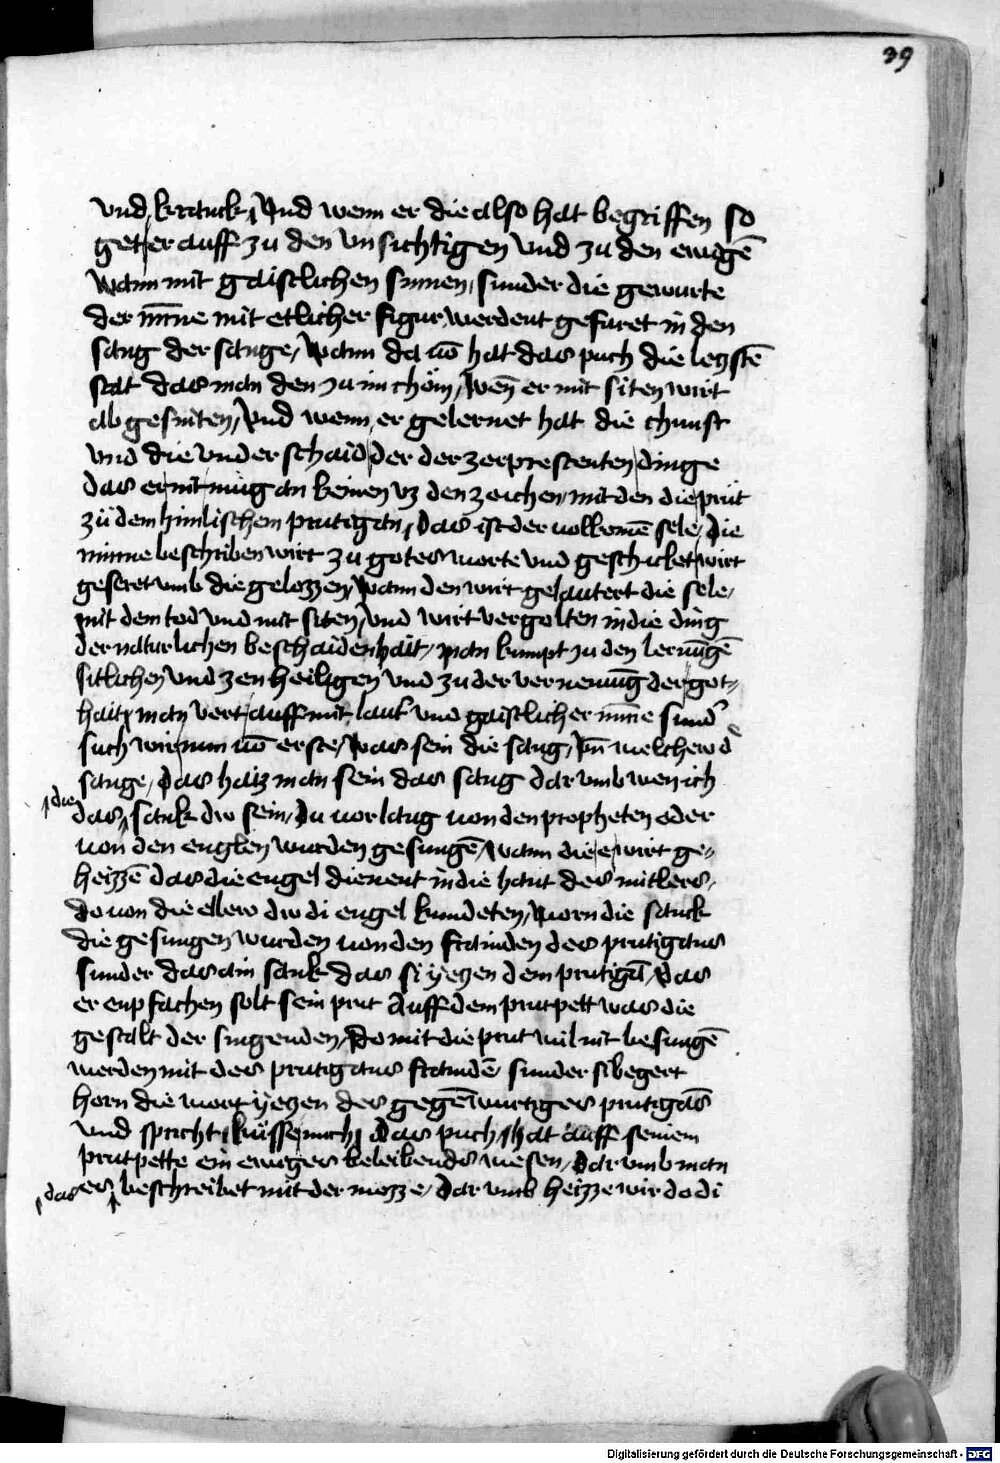 39
vnd kranck / Vnd wenn er die also hat begriffen so
get er auff zu den vnsichtigen vnd zu den ewigē
wann mit gaistlichen sinnen / sunder die gewurte
der m̄ne mit etlicher figur werdent gefuret in den
sang der sange / wann da uō hat das puch die leczstē
stat das man den zu im chöm / wen̄ er mit siten wirt
ab gesniten / Vnd wenn er gelernet hat die chunst
vnd die vnderschaid der der zerprestenten dinge
das er nit mug an keinen vz den zeichen mit den die prüt
zü dem himlischem prutigan / das ist der uolkomē sele / die
minne beschriben wirt zu gotes worte vnd geschicket wirt
geseret vmb die gelozzen / wann den wirt gelautert die sele /
mit dem tod vnd mit siten / vnd wirt vergolten in die ding
der naturlichen beschaidenhait / man kumpt zu den lerūgē
sitlichen vnd zen heiligen vnd zu der vernenūg der got=
hait / man vert auff mit lauf vnd gaistlicher m̄ne sund'
such wir nun uō erste / was sein die sang /
sange / das haiz man sein das sang dar vmb wen ich
die
das sank dro sein / du vorlang uon den propheten oder
uon den englen wurden gesungē / wann die e wirt ge=
heizzē das die engel dienent in die hant des mitlers /
do uon die ellew dw di engel kundeten / worn die sanck
die gesungen wurden uon den frainden des prutigans
sunder das ain sank das si yezen dem prutigā / das
er enpfachen solt sein prut Auff dem prutpett was die
gestalt der singenden / do mit die prut wil nit besungē
werden mit des prutigans fraindē sunder si begert
horn die wort yezen des gegēwurtiges prutigās
vnd spricht / küsse mich / das puch hat auff seinem
prutpette ein ewiges beleibends wesen / dar vmb man
das
es beschreibet mit der mozze / dar vmb heizze wir do di
Digitalisierung gefördert durch die Deutsche Forschungsgemeinschaft - DFG